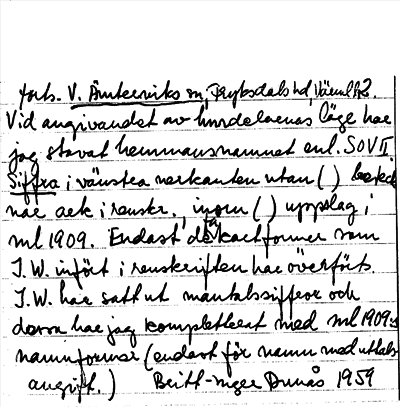 forts. V. Ämterviks sn, Fryksdals hd, Värml. l.
Vid angivandet av hundelarnas läge har
jag stavat hemmansnamnet enl. SOV II.
Siffra i vänstra nerkanten utan ( )
nar ark i renskr., inom ( ) uppslag i
ml 1909. Endast de kartformer som
J.W. infört i renskriften har överförts.
J.W. har satt ut mantalssiffror och
dessa har jag kompletterat med ml 1909:s
namnformer (endast för namn med uttals-
angift.) Britt-Inger 1959